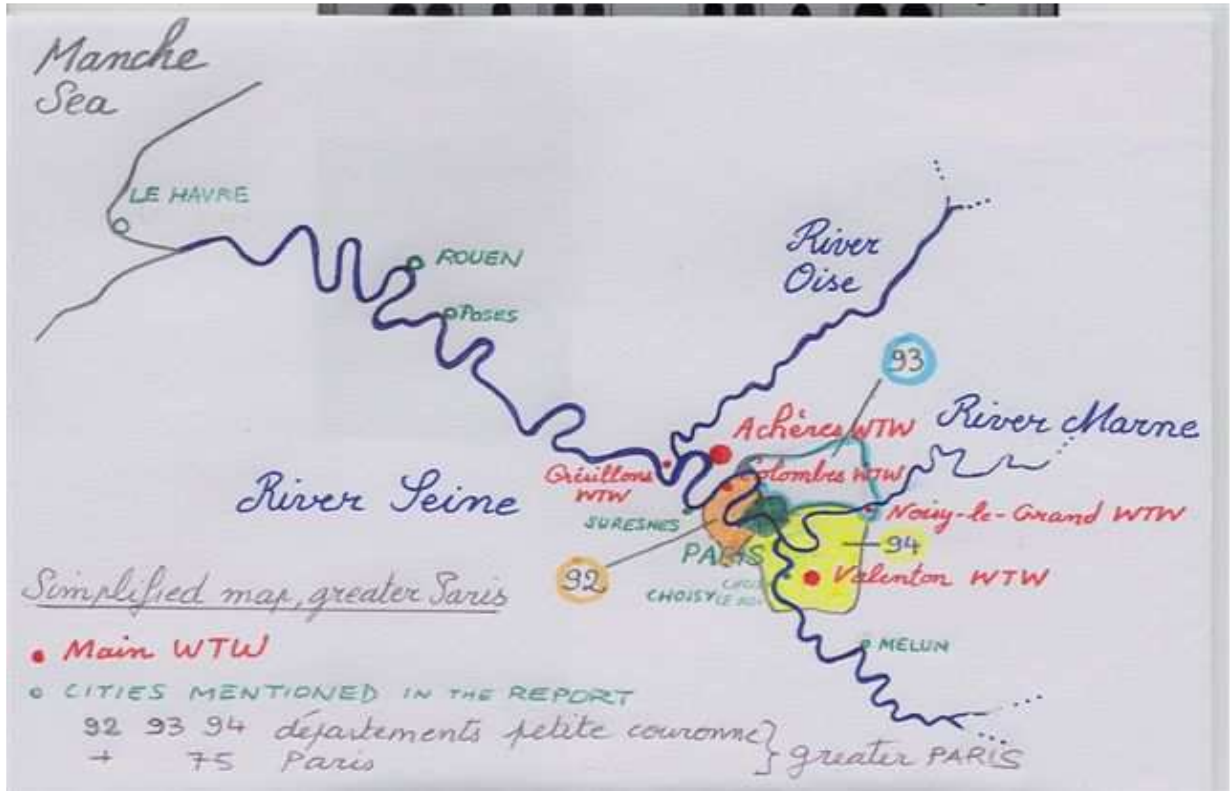 Manche
Sea
LE HAVRE
ROUEN
POSES
River
Oise
93
River Marne
Achères WTW
Colombes WTW
Grésillons
WTW
River Seine
SURESNES
Noisy-le-Grand WTW
PARIS
94
92
Valenton WTW
CHOISY LE ROI
MELUN
Simplified map, greater Paris
Main WTW
CITIES MENTIONED IN THE REPORT
92 93 94 départements petite couronne
+ 75 Paris
greater PARIS